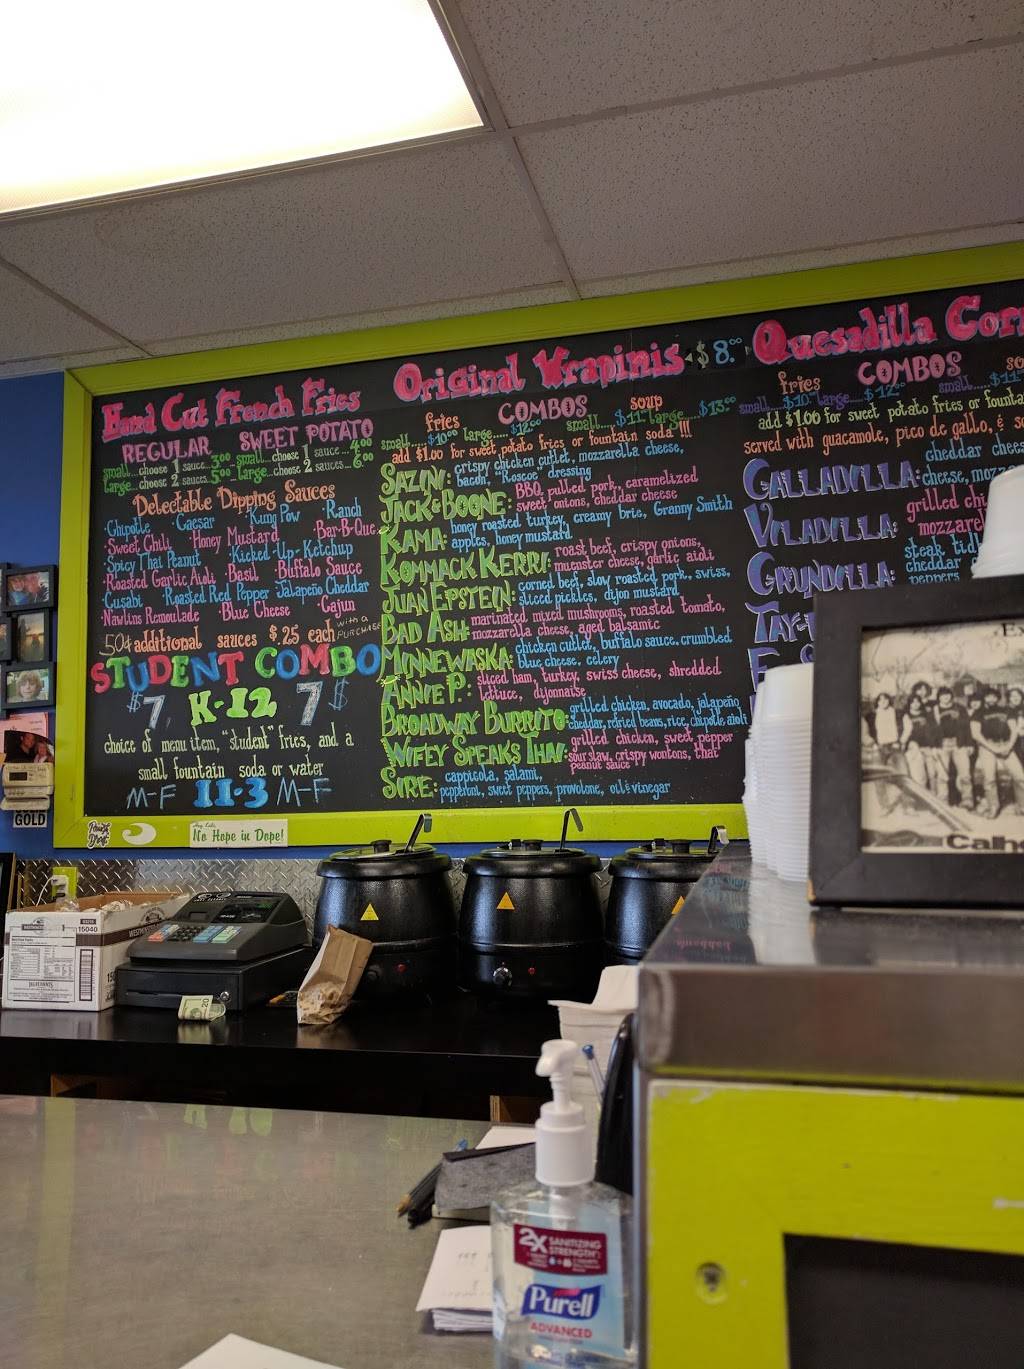 Hand Cut French Fries
REGULAR SWEET POTATO
small...choose 1 sauce...3.00 small...choose 1 sauce...4.00
large...choose 2 sauces...5.00 large...choose 2 sauces...6.00
Delectable Dipping Sauces
·Chipotle ·Caesar ·Kung Pow ·Ranch
·Sweet Chili ·Honey Mustard ·Bar-B-Que
·Spicy Thai Peanut ·Kicked-Up-Ketchup
·Roasted Garlic Aioli ·Basil ·Buffalo Sauce
·Cusabi ·Roasted Red Pepper ·Jalapeño Cheddar
·Nawlins Remoulade ·Blue Cheese ·Cajun
50¢ additional sauces $.25 each with a PURCHASE
STUDENT COMBO
$7 K-12 7$
choice of menu item, "student" fries, and a
small fountain soda or water
M-F 11-3 M-F
Original Wrapinis $8.00
fries COMBOS soup
small....$10.00 large....$12.00 small....$11.00 large....$13.00
add $1.00 for sweet potato fries or fountain soda!!!
SAZINI: crispy chicken cutlet, mozzarella cheese,
bacon, "Roscoe" dressing
JACK & BOONE: BBQ pulled pork, caramelized
sweet onions, cheddar cheese
KAMA: honey roasted turkey, creamy brie, Granny Smith
apples, honey mustard
KOMMACK KERRI: roast beef, crispy onions,
muenster cheese, garlic aioli
JUAN EPSTEIN: corned beef, slow roasted pork, swiss,
sliced pickles, dijon mustard
BAD ASH: marinated mixed mushrooms, roasted tomato,
mozzarella cheese, aged balsamic
MINNEWASKA: chicken cutlet, buffalo sauce, crumbled
blue cheese, celery
ANNIE P: sliced ham, turkey, swiss cheese, shredded
lettuce, dijonnaise
BROADWAY BURRITO: grilled chicken, avocado, jalapeño
cheddar, refried beans, rice, chipotle aioli
WIFEY SPEAKS THAI: grilled chicken, sweet pepper
sour slaw, crispy wontons, thai
peanut sauce
SIRE: cappicola, salami,
pepperoni, sweet peppers, provolone, oil & vinegar
Quesadilla Cor
fries COMBOS so
small...$10.00 large....$12.00 small.....$11
add $1.00 for sweet potato fries or founta
served with guacamole, pico de gallo, & so
GALLADILLA: cheddar cheese
cheese, mozz
VILADILLA: grilled chi
mozzarel
GRUNDILLA: steak, tid
cheddar
peppers
TAY-
GOLD
No Hope in Dope!
15040
20
Ex
Calh
2X SANITIZING
STRENGTH
Purell
ADVANCED